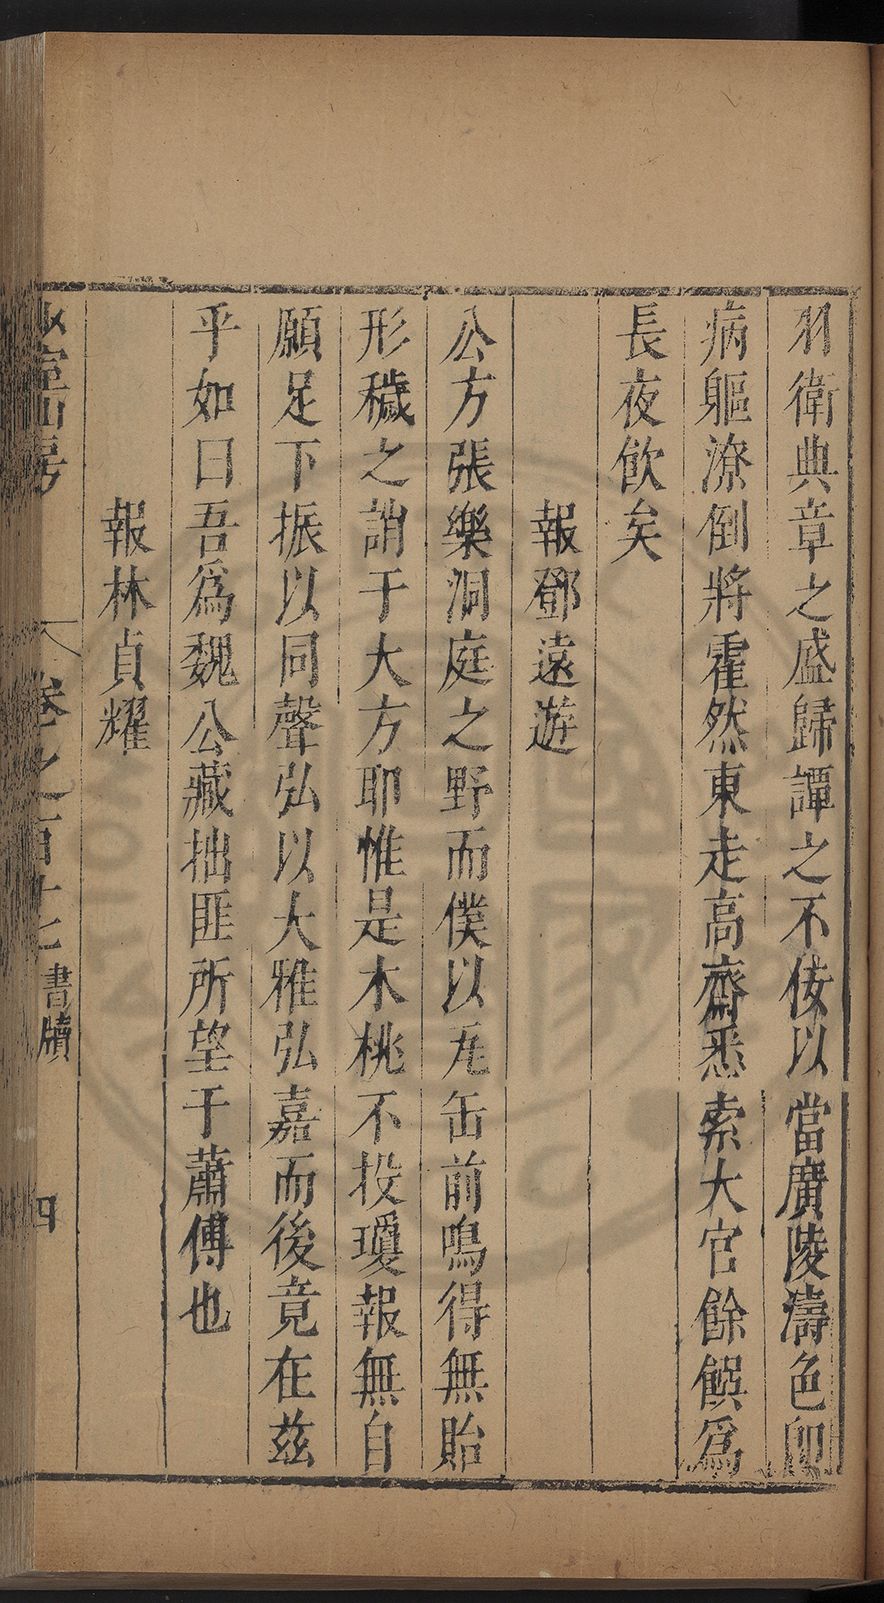 羽衛典章之盛歸譚之不佞以當廣陵濤色卽
病軀潦倒將霍然東走高齋悉索大官餘饌爲
長夜飲矣
報鄧遠遊
公方張樂洞庭之野而僕以瓦缶前鳴得無貽
形穢之誚于大方耶惟是木桃不投瓊報無自
願足下振以同聲弘以大雅弘嘉而後竟在茲
乎如曰吾爲魏公藏拙匪所望于蕭傅也
報林貞耀
少室山房
卷之百十七
書牘
四